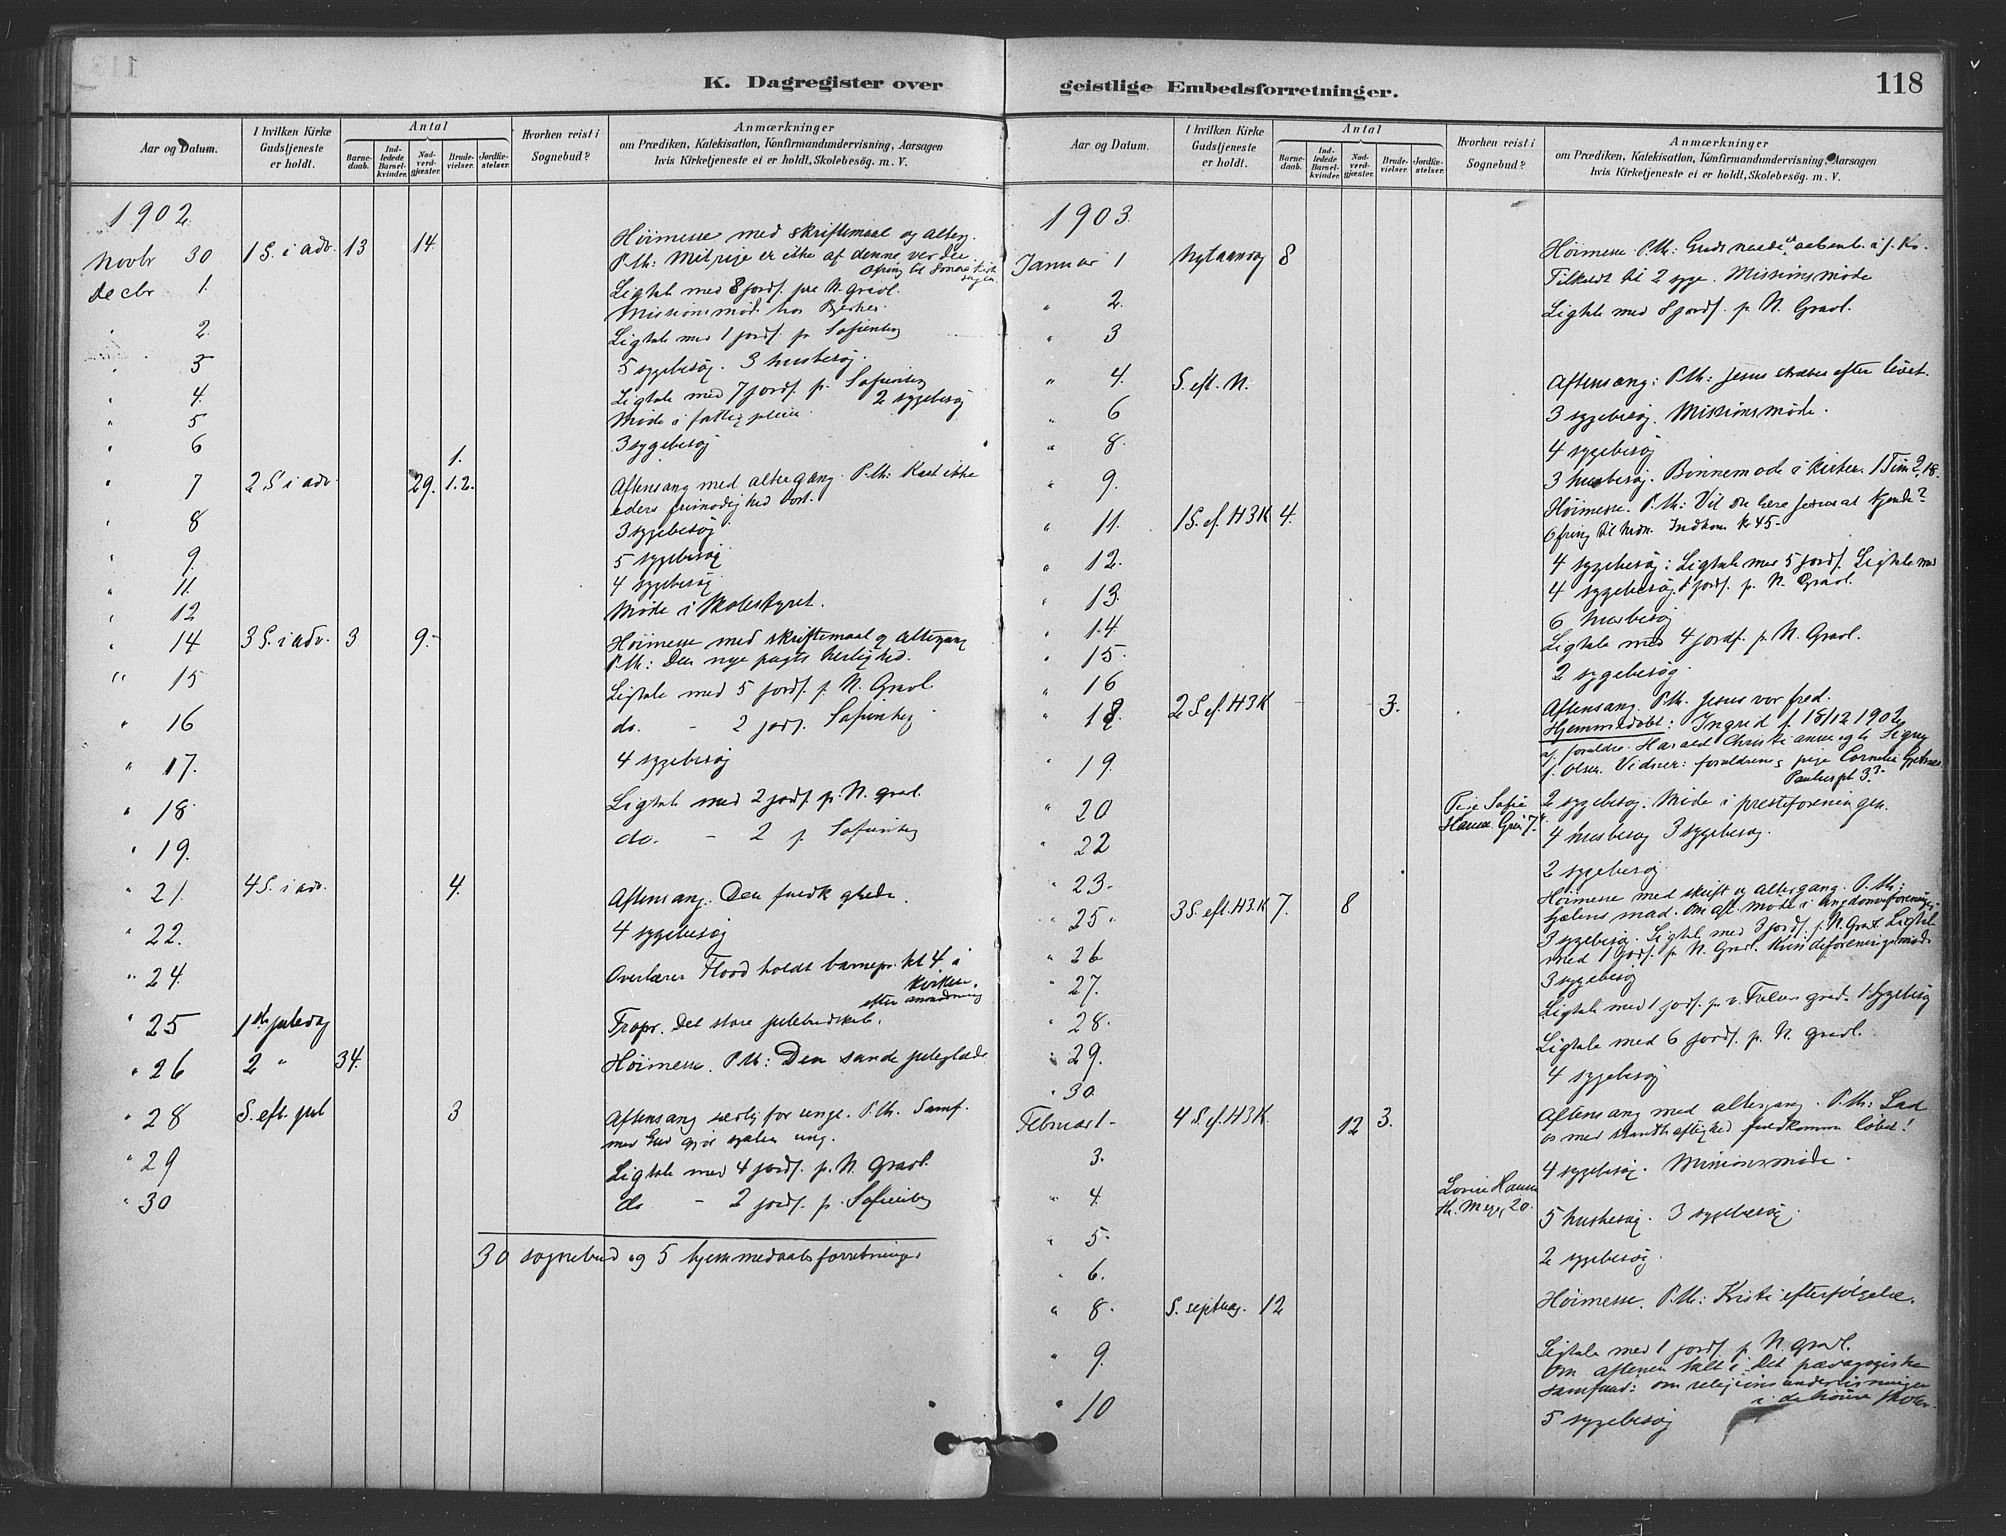 K. Dagregister over
Aar og Datum.
I hvilken Kirke Gudstjeneste er holdt.
Antal
Barnedaab.
Indledede Barselkvinder.
Nadverdgjæster.
Brudevielser.
Jordfæstelser.
Hvorhen reist i Sognebud?
Anmærkninger
om Prædiken, Katekisation, Konfirmandundervisning, Aarsagen
hvis Kirketjeneste ei er holdt, Skolebesøg. m. V.
1902
Novbr 30 1 S. i adv. 13 14 Høimesse med skriftemaal og alterg.
P.th: Mit rige er ikke af denne verden.
Decbr 1. Ligtale med 8 jordf. på N. Gravl.
Missionsmøde hos
" 2. Ligtale med 1 jordf. p. Sofienberg
" 3 5 sygebesøg. 3 husbesøg.
" 4. Ligtale med 7 jordf. p. Sofienberg
2 sygebesøg
" 5 Møde i fattigpleien.
" 6 1. 3 sygebesøg
" 7 2 S i adv. 29. 1.2. Aftensang med altergang. P.th: Kast ikke
eders frimodighed bort.
" 8 3 sygebesøg
" 9. 5 sygebesøg
" 11. 4 sygebesøg
" 12 Møde i skolestyret.
" 14 3 S. i adv. 3 9. Høimesse med skriftemaal og altergang
P.th: Den nye pagts herlighed.
" 15 Ligtale med 5 jordf. p. N. Gravl.
" 16 do. - 2 jordf. Sofienberg
" 17. 4 sygebesøg
" 18 Ligtale med 2 jordf. p. N. grav.
" 19. do. - 2 p. Sofienberg
" 21 4 S. i adv. 4. Aftensang. Den glæde.
" 22. 4 sygebesøg
" 24. Overlærer Flood holdt barnepr. kl 4 i
kirken.
efter anmodning
" 25 1ste juledag Fropr. Det store julebudskab.
" 26 2 " 34. Høimesse. P.th: Den sande juleglæde.
" 28 S. eft. jul 3 Aftensang særlig for unge. P.th. Samf.
med Gud gjør sjælen ung.
" 29 Ligtale med 4 jordf. p. N. Gravl.
" 30 do - 2 jordf. p. Sofienberg
30 sognebud og 5 hjemmedaabsforretninger
geistlige Embedsforretninger.
118
Aar og Datum.
I hvilken Kirke Gudstjeneste er holdt.
Antal
Barnedaab.
Indledede Barselkvinder.
Nadverdgjæster.
Brudevielser.
Jordfæstelser.
Hvorhen reist i Sognebud?
Anmærkninger
om Prædiken, Katekisation, Konfirmandundervisning, Aarsagen
hvis Kirketjeneste ei er holdt, Skolebesøg. m. V.
1903
Januar 1 Nytaarsdag 8 Høimesse. P.th: Guds naade aabenb. i J. Kr.
Tilkaldt til 2 syge. Missionsmøde
" 2. Ligtale med 8 jordf. p. N. Gravl.
" 3
" 4. S. eft. N. Aftensang: P.th: Jesus stræber efter livet.
" 6 3 sygebesøg. Missionsmøde.
" 8. 4 sygebesøg
" 9. 3 husbesøg. Bønnemøde i kirken. 1 Tim 2,18.
" 11. 1 S. ef. H3K 4. Høimesse. P.th: Vil du lære Jesus at kjende?
Ofring til Indkom kr 45-
" 12. 4 sygebesøg: Ligtale med 5 jordf. Ligtale med
" 13. 4 sygebesøg. 1 jordf. p. N. Gravl.
" 14 6 husbesøg
" 15. Ligtale med 4 jordf. p. N. Gravl.
" 16 2 sygebesøg
" 18. 2 S ef. H3K 3. Aftensang. P.th. Jesus vor fred.
Hjemmedøbt: Ingrid f. 18/12 1902
af foraldre: Harald Christiansen og h. Signy
f. Olsen. Vidner: forældrene, pige Cornelia
Pauluspl 33
" 19. 2 sygebesøg. Møde i presteforeningen.
" 20 Pige Sofie
Hansen Grøn 7. 4 husbesøg 3 sygebesøg.
" 22 2 sygebesøg
" 23.
" 25 3 S. eft. H3.K 7. 8 Høimesse med skrift og altergang. P.th:
Sjælens mad. Om aft. møde i ungdomsforening.
" 26 3 sygebesøg. Ligtale med 3 jordf. p. N. Gravl. Ligtale
med 1 jordf. p. N. Gravl. Kvindeforeningsmøde
" 27. 3 sygebesøg
" 28. Ligtale med 1 jordf. p. v. Frelsers gravl. 1 sygebesøg
" 29. Ligtale med 6 jordf. p. N. Gravl.
" 30. 4 sygebesøg
Februar 1- 4 S. ef. H3K. 12 3. Aftensang med altergang. P.th: Lad
os med standhaftighed fuldkomme løbet!
" 3. 4 sygebesøg. Missionsmøde.
" 4. Lovise Hansen
th. Meyer 20. 5 husbesøg. 3 sygebesøg.
" 5. 2 sygebesøg.
" 6.
" 8. S. septuag. 12 Høimesse. P.th: Kristi efterfølgelse.
" 9. Ligtale med 1 jordf. p. N. gravl.
Om aftenen talt i Det pædagogiske
samfund: om religionsundervisningen
i de høiere skoler.
" 10 5 sygebesøg